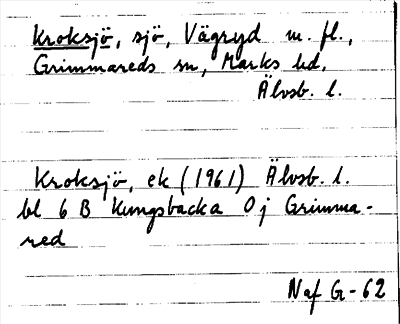 Kroksjö, sjö, Vägryd m. fl.,
Grimmareds sn, Marks hd,
Älvsb. l.
Kroksjö, ek (1961) Älvsb. l.
bl 6 B Kungsbacka 0j Grimma-
red
Naf G-62